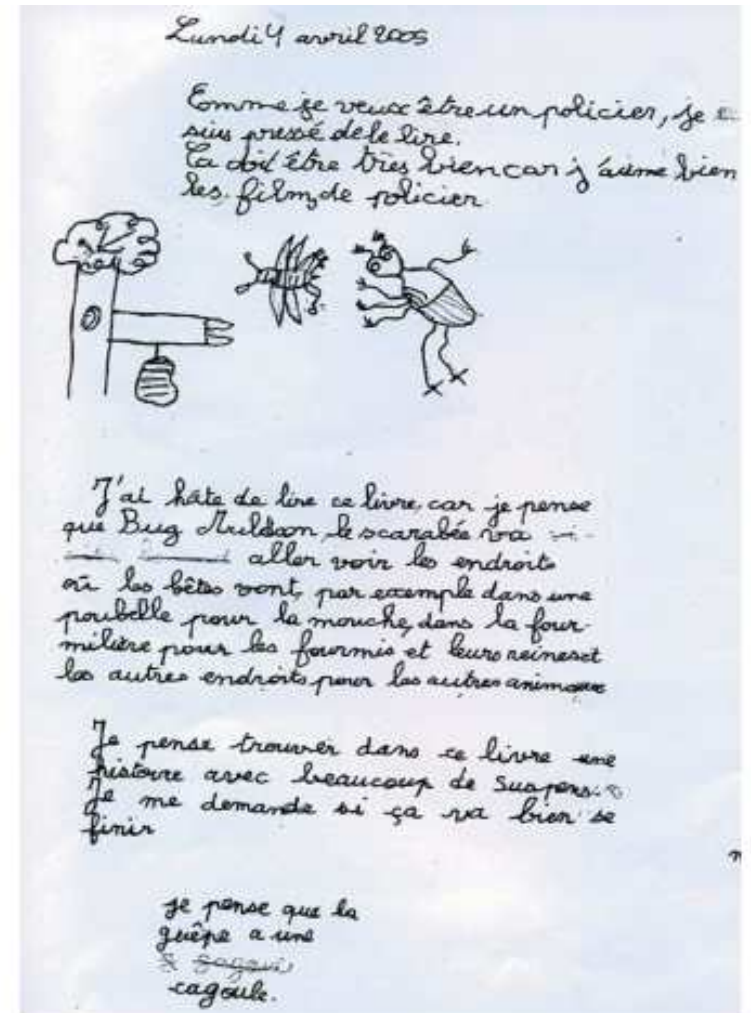 Lundi 4 avril 2005
Comme je veux être un policier, je
suis pressé de le lire.
Ca doit être très bien car j'aime bien
les film de policier
J'ai hâte de lire ce livre, car je pense
que Bug Muldoon, le scarabée va
aller voir les endroits
où les bêtes vont, par exemple dans une
poubelle pour la mouche, dans la four-
milière pour les fourmis et leurs reines et
les autres endroits pour les autres animaux
Je pense trouver dans ce livre une
histoire avec beaucoup de suspens.
Je me demande si ça va bien se
finir
je pense que la
guêpe a une
cagoule.